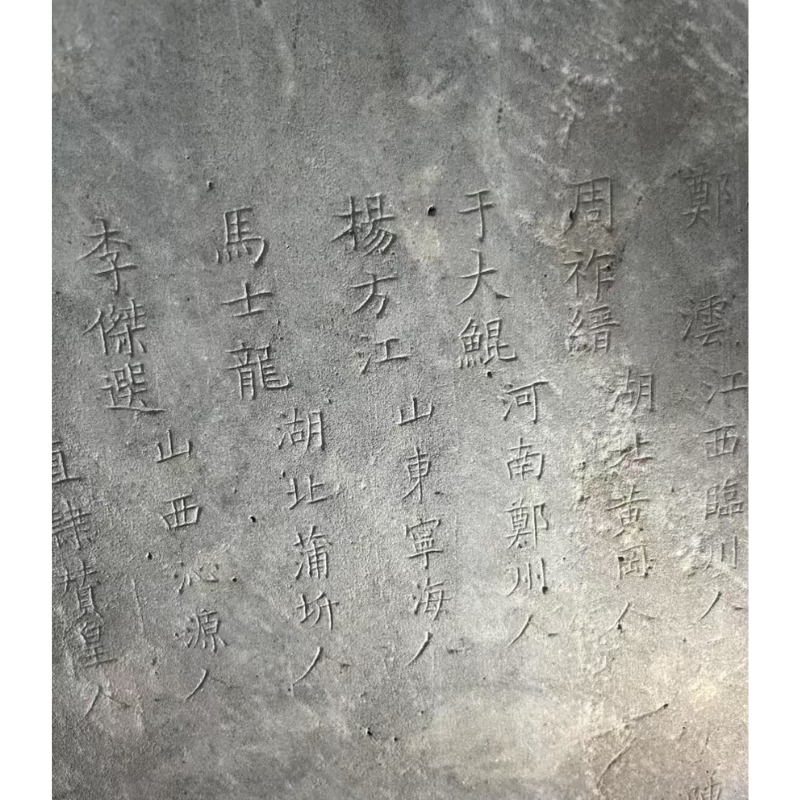 鄭澐 江西臨川人
周祚縉 湖北黃岡人
于大鯤 河南鄭州人
楊方江 山東寧海人
馬士龍 湖北蒲圻人
李傑選 山西沁源人
直隸贊皇人